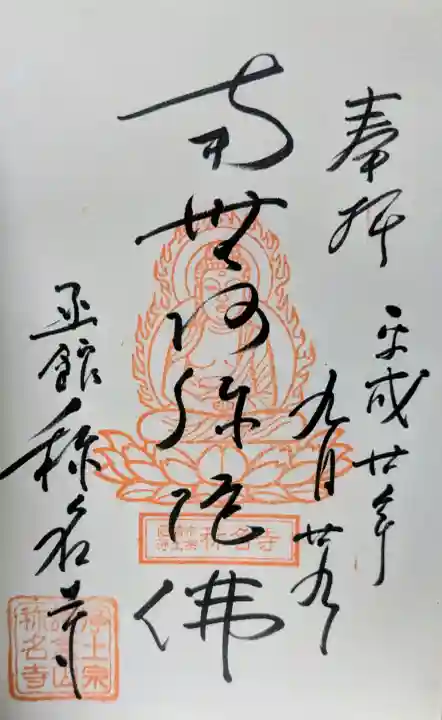 奉拝
平成廿年
九月廿九
南無阿弥陀佛
函館称名寺
称名寺
浄土宗
称名寺